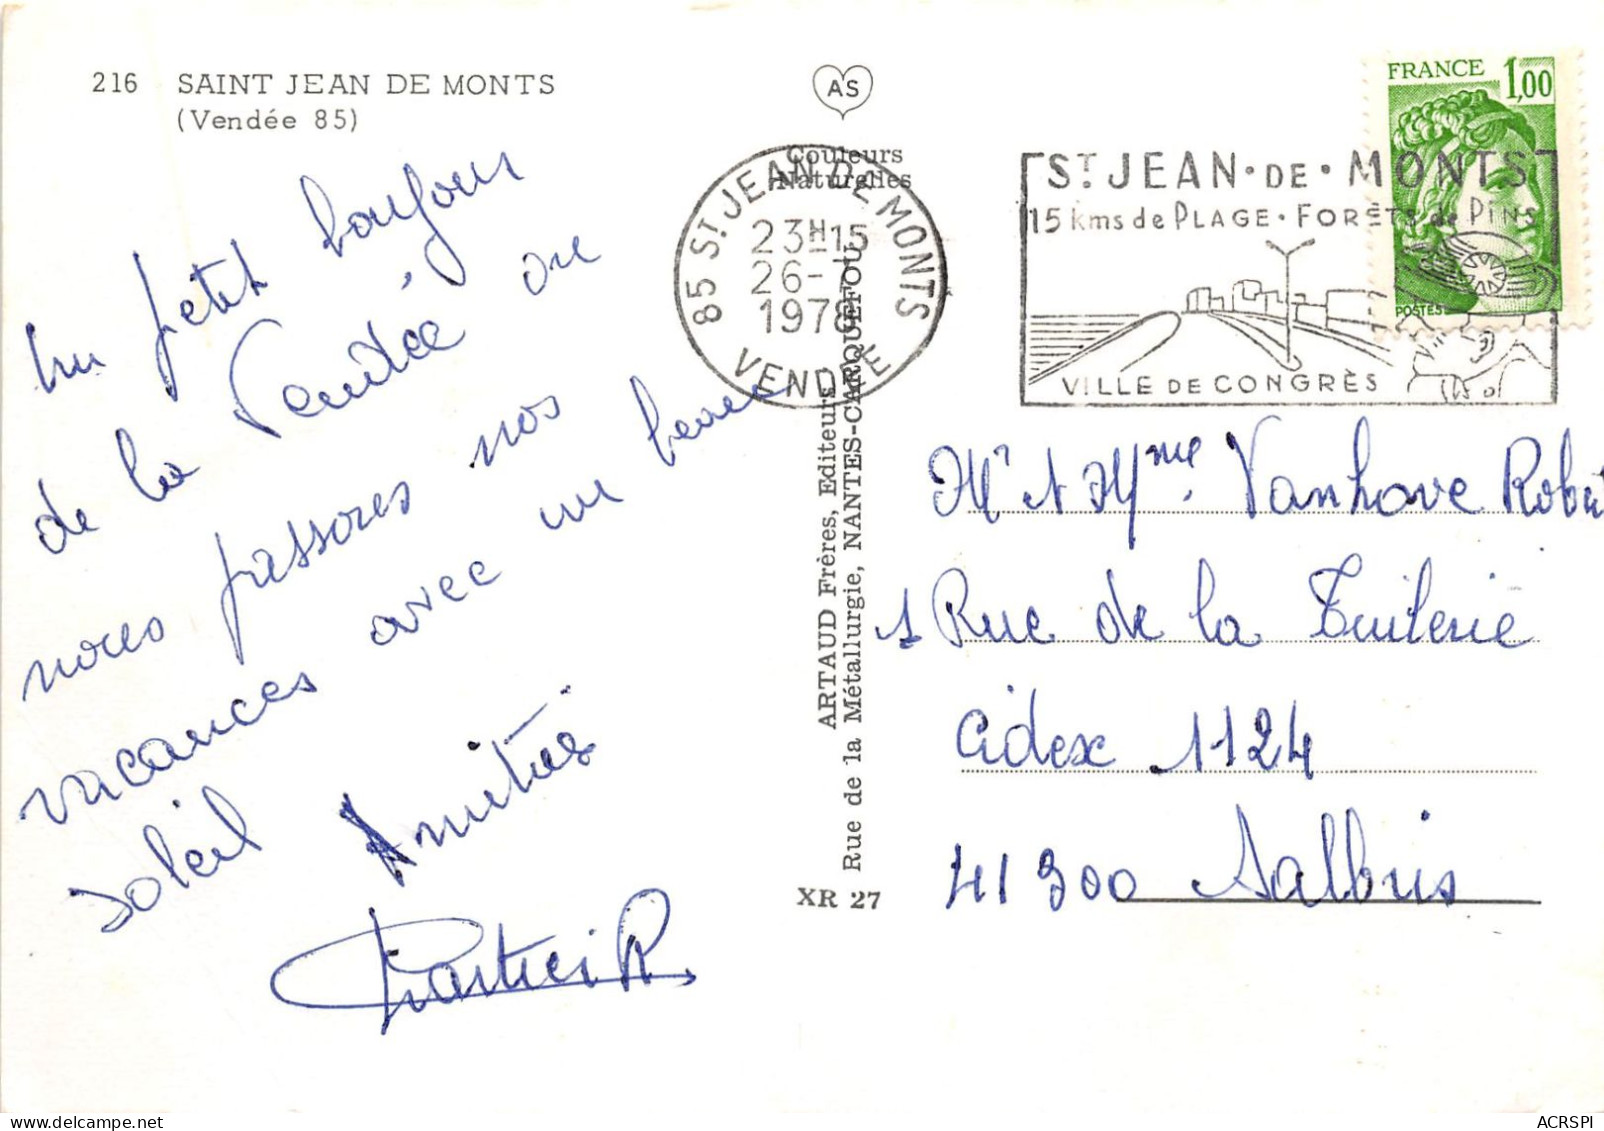 216 SAINT JEAN DE MONTS
(Vendée 85)
AS
Couleurs
Naturelles
85 ST JEAN DE MONTS
23H15
26-7
1978
VENDEE
FRANCE 1,00
POSTES
ST JEAN·DE·MONTS
15 kms de PLAGE·FORÊTS de PINS
VILLE DE CONGRÈS
un petit bonjour
de la Vendée ou
nous passons nos
vacances avec un beau
soleil
Amitiés
ARTAUD Frères, Editeurs
Rue de la Métallurgie, NANTES-CARQUEFOU
XR 27
Mr & Mme Vanhove Robert
1 Rue de la Tuilerie
Cidex 1124
41300 Salbris
ACRSPI